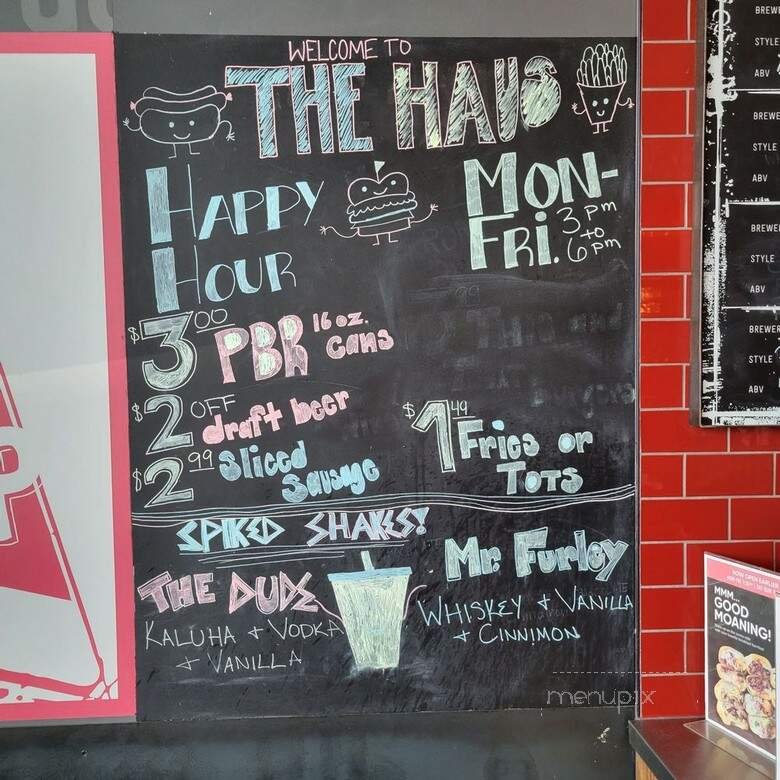 WELCOME TO
THE HAUS
HAPPY
HOUR
MON-
FRI. 3pm
to
6pm
$3.00 PBR 16 oz.
cans
$2 OFF
draft beer
$2.99 Sliced
Sausage
$1.49 Fries or
TOTS
SPIKED SHAKES!
THE DUDE
KALUHA + VODKA
+ VANILLA
Mr. Furley
WHISKEY + VANILLA
+ CINNIMON
menupix
BREWE
STYLE
ABV
BREWE
STYLE
ABV
BREWE
STYLE
ABV
BREWER
STYLE
ABV
NOW OPEN EARLIER
MMM...
GOOD
MOANING!